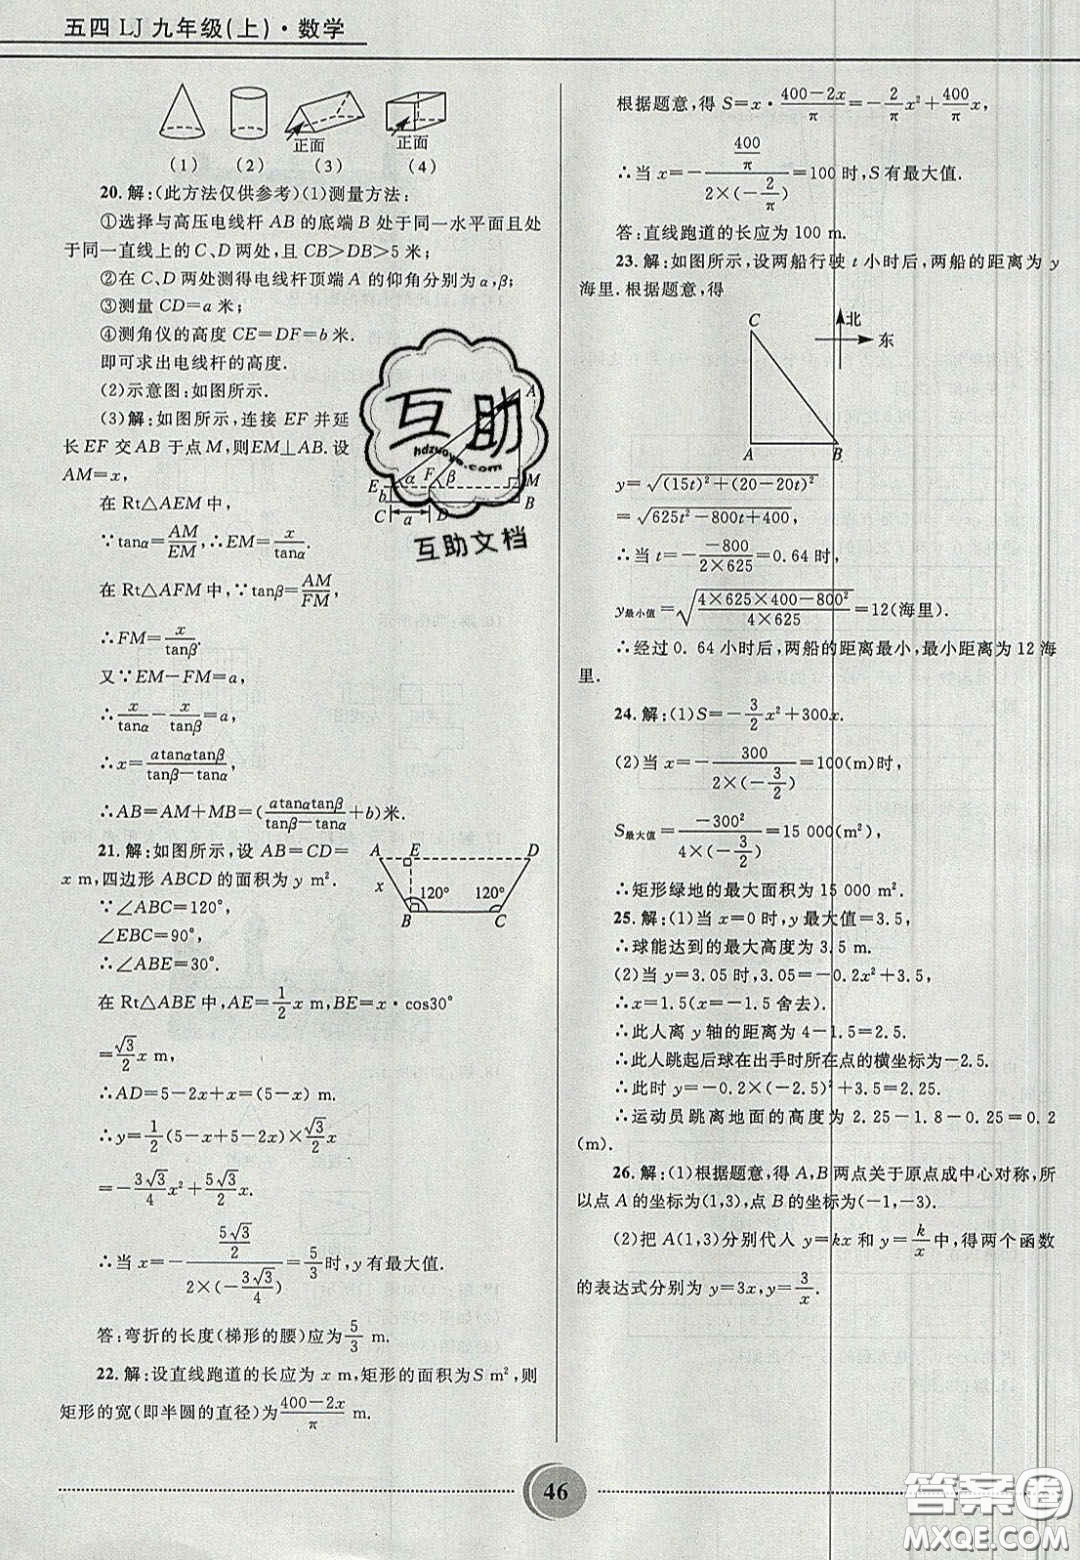 五四 LJ 九年级(上)·数学
正面
正面
(1) (2) (3) (4)
20. 解:(此方法仅供参考)(1)测量方法:
①选择与高压电线杆 AB 的底端 B 处于同一水平面且处
于同一直线上的 C、D 两处,且 CB>DB>5 米;
②在 C、D 两处测得电线杆顶端 A 的仰角分别为 α,β;
③测量 CD=a 米;
④测角仪的高度 CE=DF=b 米.
即可求出电线杆的高度.
(2)示意图:如图所示.
(3)解:如图所示,连接 EF 并延
长 EF 交 AB 于点 M,则EM⊥AB. 设
AM=x,
A
E α F β M
b
C a D B
在 Rt△AEM 中,
∵tanα=AM/EM,∴EM=x/tanα.
在 Rt△AFM 中,∵tanβ=AM/FM,
∴FM=x/tanβ.
又∵EM-FM=a,
∴x/tanα-x/tanβ=a,
∴x=atanαtanβ/(tanβ-tanα)
∴AB=AM+MB=(atanαtanβ/(tanβ-tanα)+b)米.
21. 解:如图所示,设 AB=CD=
x m,四边形 ABCD 的面积为 y m².
∵∠ABC=120°,
∠EBC=90°,
∴∠ABE=30°.
A E D
x 120° 120°
B C
在 Rt△ABE 中,AE=1/2 x m,BE=x·cos30°
=√3/2 x m,
∴AD=5-2x+x=(5-x) m.
∴y=1/2(5-x+5-2x)×√3/2 x
=-3√3/4 x²+5√3/2 x.
∴当 x=-(5√3/2)/(2×(-3√3/4))=5/3时,y 有最大值.
答:弯折的长度(梯形的腰)应为5/3 m.
22. 解:设直线跑道的长应为 x m,矩形的面积为S m²,则
矩形的宽(即半圆的直径)为(400-2x)/π m.
根据题意,得 S=x·(400-2x)/π=-2/π x²+400/π x,
∴当 x=-(400/π)/(2×(-2/π))=100 时,S 有最大值.
答:直线跑道的长应为 100 m.
23. 解:如图所示,设两船行驶 t 小时后,两船的距离为 y
海里.根据题意,得
C 北
东
A B
y=√((15t)²+(20-20t)²)
=√(625t²-800t+400),
∴当 t=--800/(2×625)=0.64 时,
y最小值=√((4×625×400-800²)/(4×625))=12(海里).
∴经过 0.64 小时后,两船的距离最小,最小距离为 12 海
里.
24. 解:(1)S=-3/2 x²+300x.
(2)当 x=-300/(2×(-3/2))=100(m)时,
S最大值=-300²/(4×(-3/2))=15 000(m²),
∴矩形绿地的最大面积为 15 000 m².
25. 解:(1)当 x=0 时,y 最大值=3.5,
∴球能达到的最大高度为 3.5 m.
(2)当 y=3.05 时,3.05=-0.2x²+3.5,
∴x=1.5(x=-1.5 舍去).
∴此人离 y 轴的距离为 4-1.5=2.5.
∴此人跳起后球在出手时所在点的横坐标为-2.5.
∴此时 y=-0.2×(-2.5)²+3.5=2.25.
∴运动员跳离地面的高度为 2.25-1.8-0.25=0.2
(m).
26. 解:(1)根据题意,得 A,B 两点关于原点成中心对称,所
以点 A 的坐标为(1,3),点 B 的坐标为(-1,-3).
(2)把 A(1,3)分别代人 y=kx 和 y=k/x 中,得两个函数
的表达式分别为 y=3x,y=3/x.
互助
hdzuoye.com
互助文档
46
答案圈
MXQE.COM